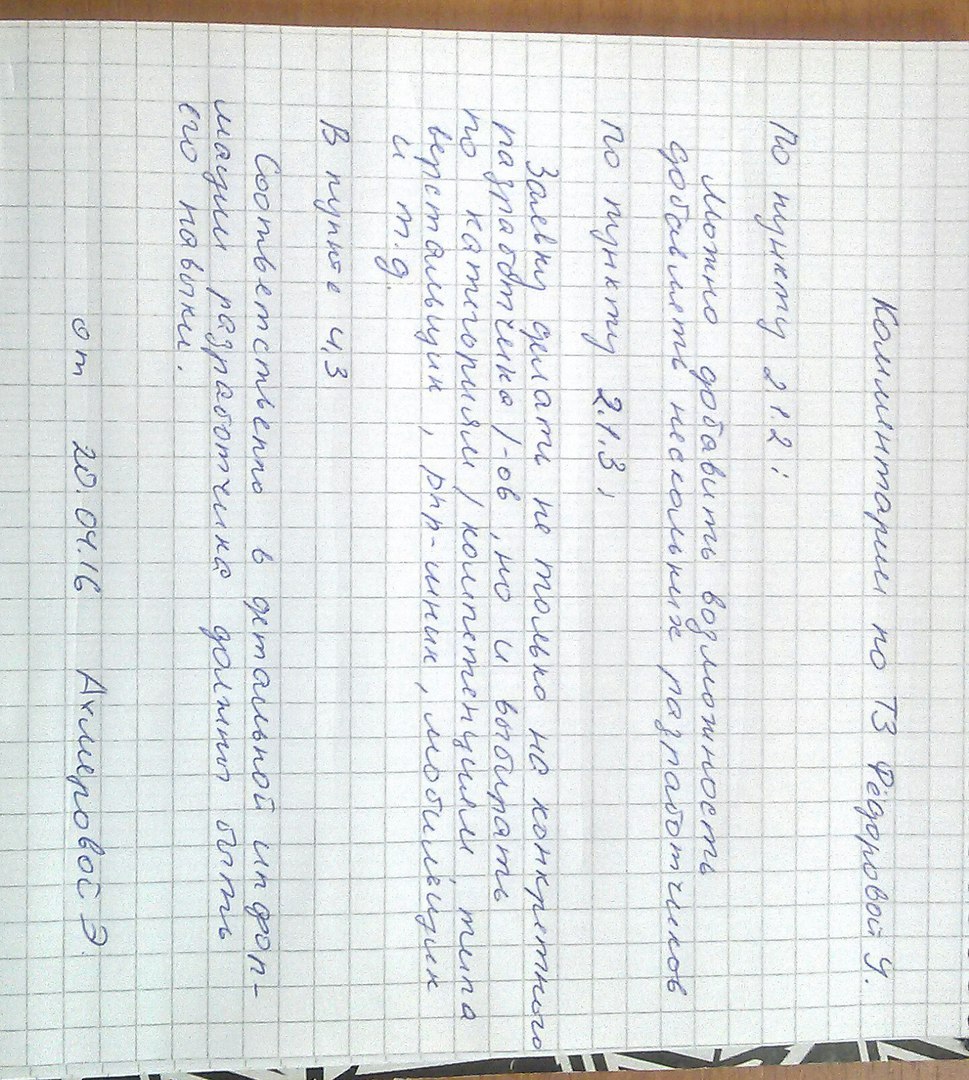 Комментарии по ТЗ Фёдоровой У.
По пункту 2.1.2:
Можно добавить возможность
добавлять нескольких разработчиков
по пункту 2.1.3:
Заявку делать не только на конкретного
разработчика/-ов, но и выбирать
по категориям/компетенциям, типа
верстальщик, php-шник, мобильщик
и т.д.
В пункте 4.3
Соответственно в детальной инфор-
мации разработчика должны быть
его навыки.
от 20.04.16 Ахмеровой Э.